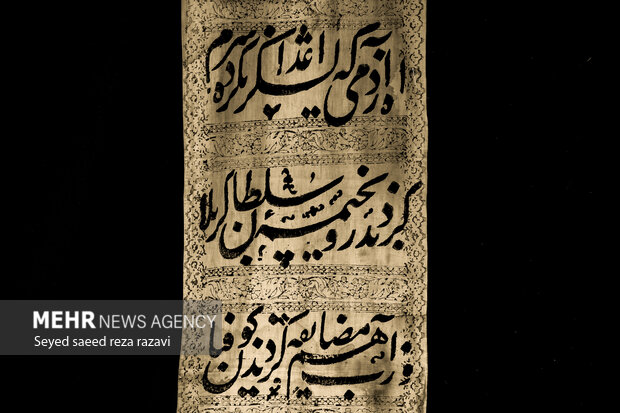 آه ازدمی که لشکر اعدا نکرده شرم
کردند رو بخیمه سلطان کربلا
از آب هم مضایقه کردند کوفیان
MEHR NEWS AGENCY
Seyed saeed reza razavi